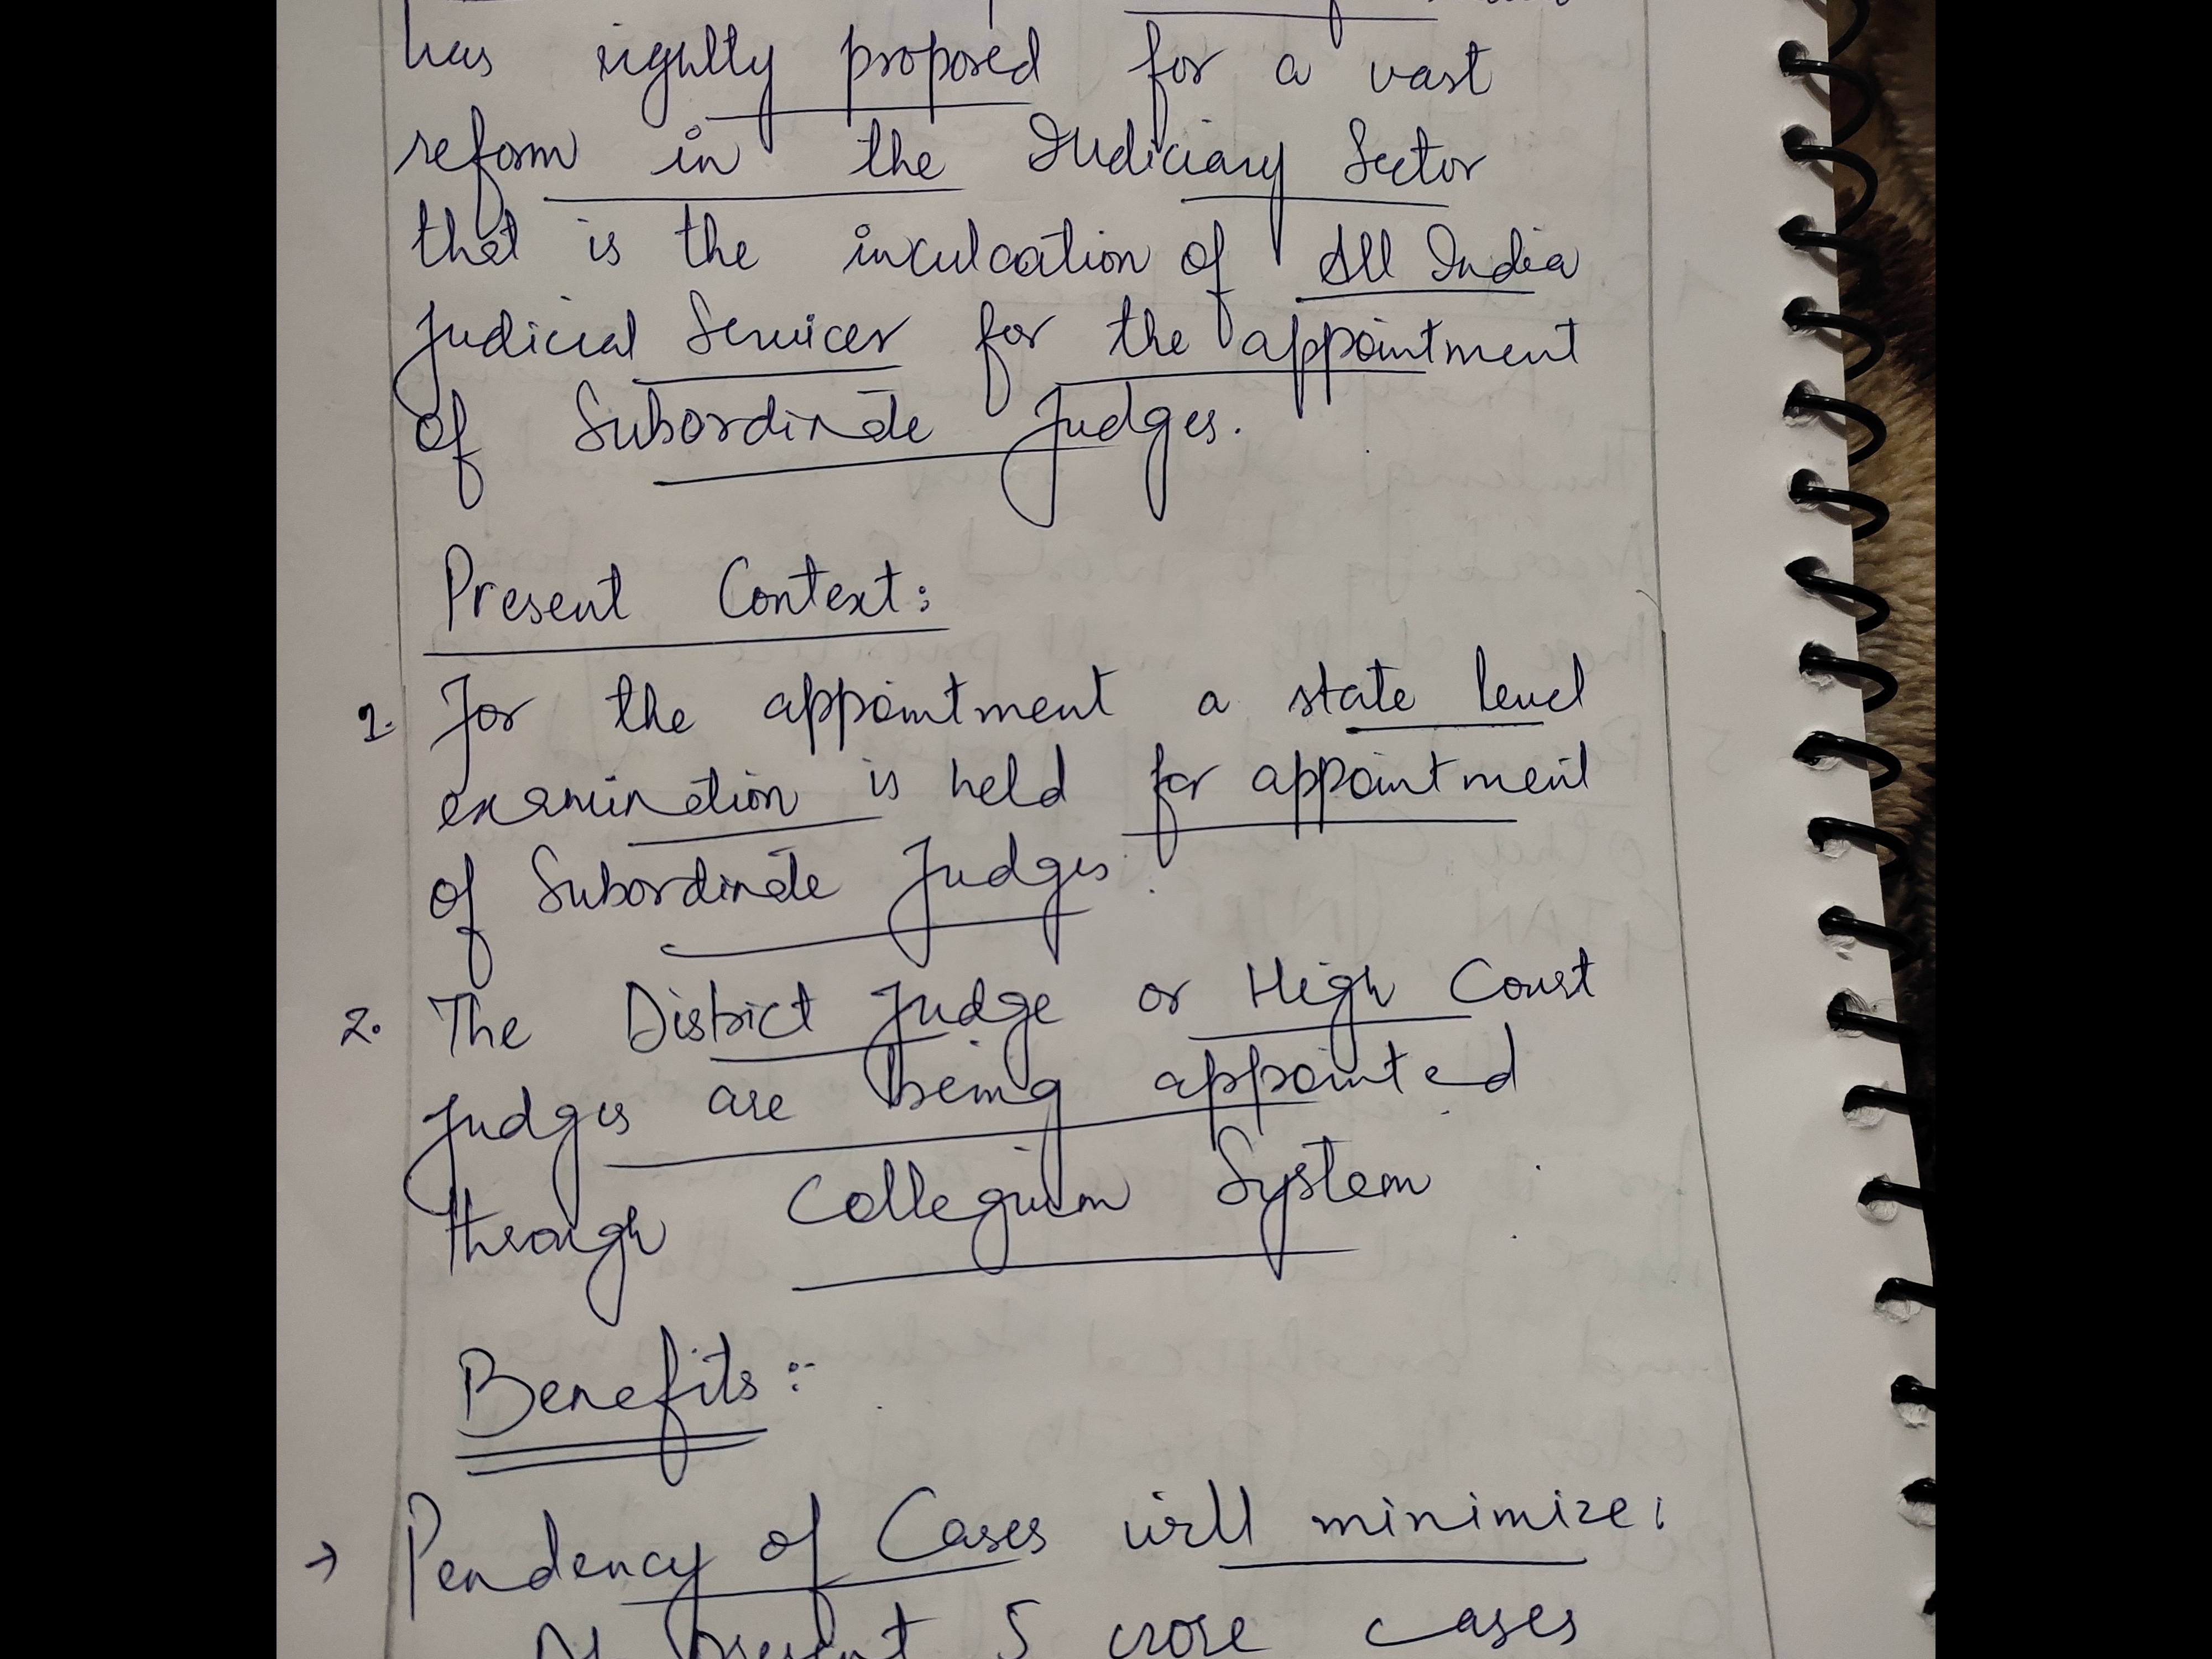 has rightly proposed for a vast
reform in the Judiciary Sector
that is the inculcation of All India
Judicial Services for the appointment
of Subordinate Judges.
Present Context:
1. For the appointment a state level
examination is held for appointment
of Subordinate Judges.
2. The District Judge or High Court
Judges are being appointed
through Collegium System
Benefits :-
→ Pendency of Cases will minimize:
At present 5 crore cases